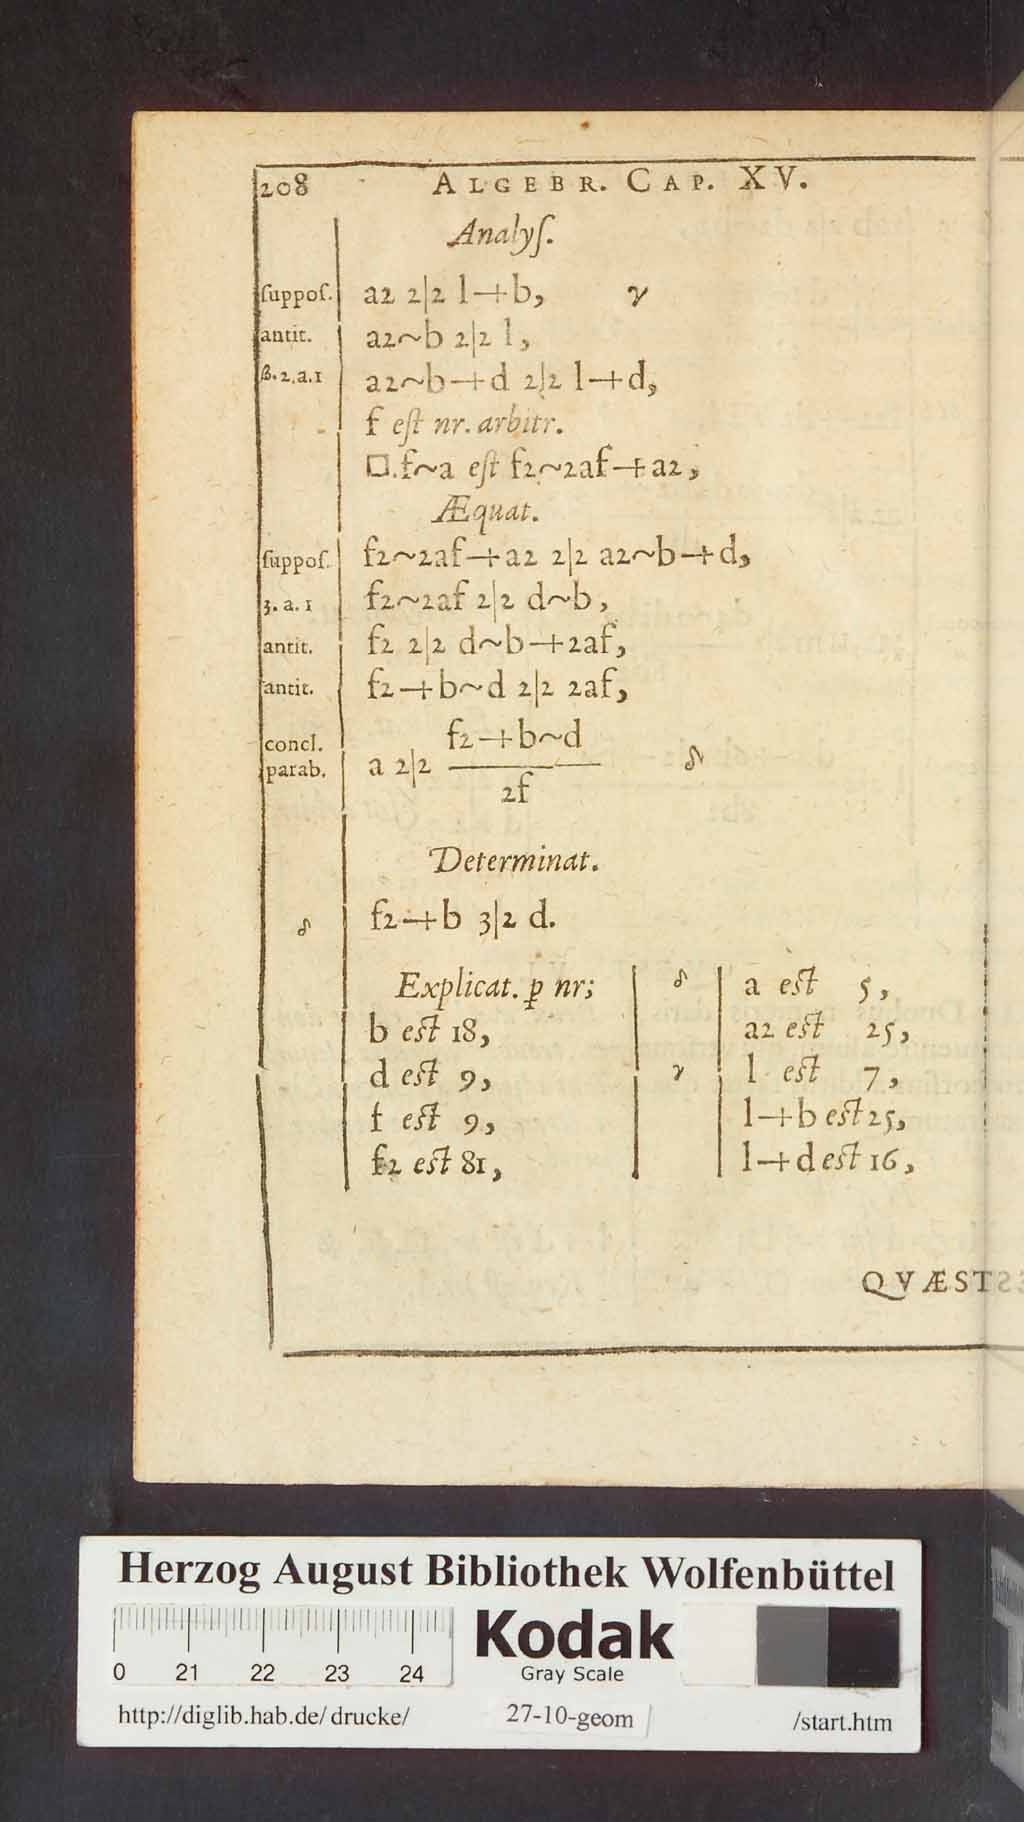 208 ALGEBR. CAP. XV.
Analyſ.
ſuppoſ. a2 2|2 l+b, γ
antit. a2~b 2|2 l,
β.2.a.1 a2~b+d 2|2 l+d,
f eſt nr. arbitr.
□.f~a eſt f2~2af+a2,
Æquat.
ſuppoſ. f2~2af+a2 2|2 a2~b+d,
3. a. 1 f2~2af 2|2 d~b,
antit. f2 2|2 d~b+2af,
antit. f2+b~d 2|2 2af,
f2+b~d
concl.
parab. a 2|2 δ
2f
Determinat.
δ f2+b 3|2 d.
Explicat. ꝑ nr; δ a eſt 5,
b eſt 18, a2 eſt 25,
d eſt 9, γ l eſt 7,
f eſt 9, l+b eſt 25,
f2 eſt 81, l+d eſt 16,
QVÆST
Herzog August Bibliothek Wolfenbüttel
Kodak
Gray Scale
0 21 22 23 24
http://diglib.hab.de/drucke/ 27-10-geom /start.htm